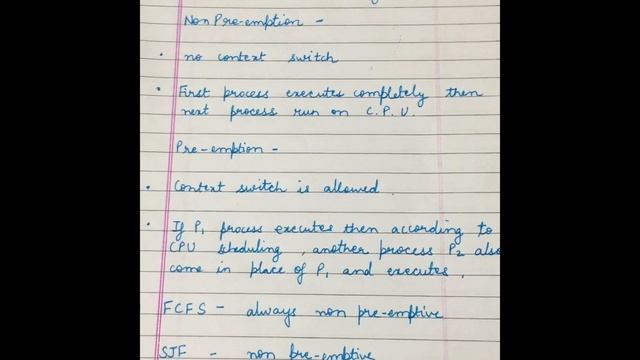 Non Pre-emption -
• no context switch
• First process executes completely then
next process run on C.P.U.
Pre-emption -
• Context switch is allowed.
• If P1 process executes then according to
CPU sheduling, another process P2 also
come in place of P1 and executes.
FCFS - always non pre-emptive
SJF - non pre-emptive